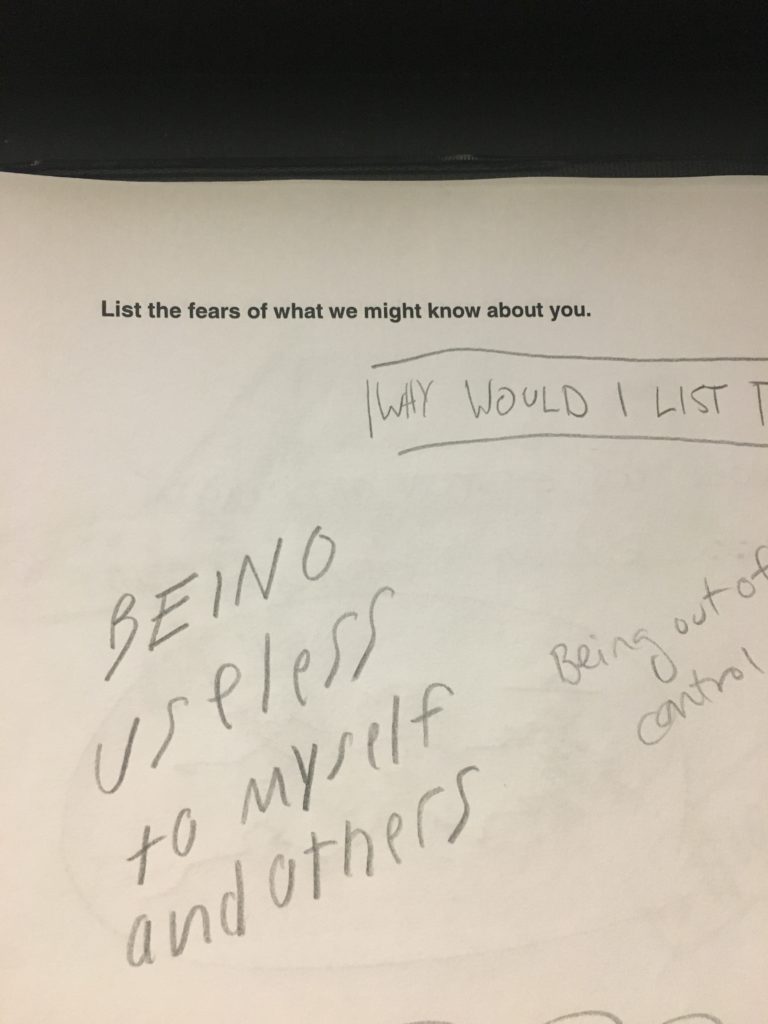 List the fears of what we might know about you.
WHY WOULD I LIST T
BEING
useless
to myself
and others
Being out of
control